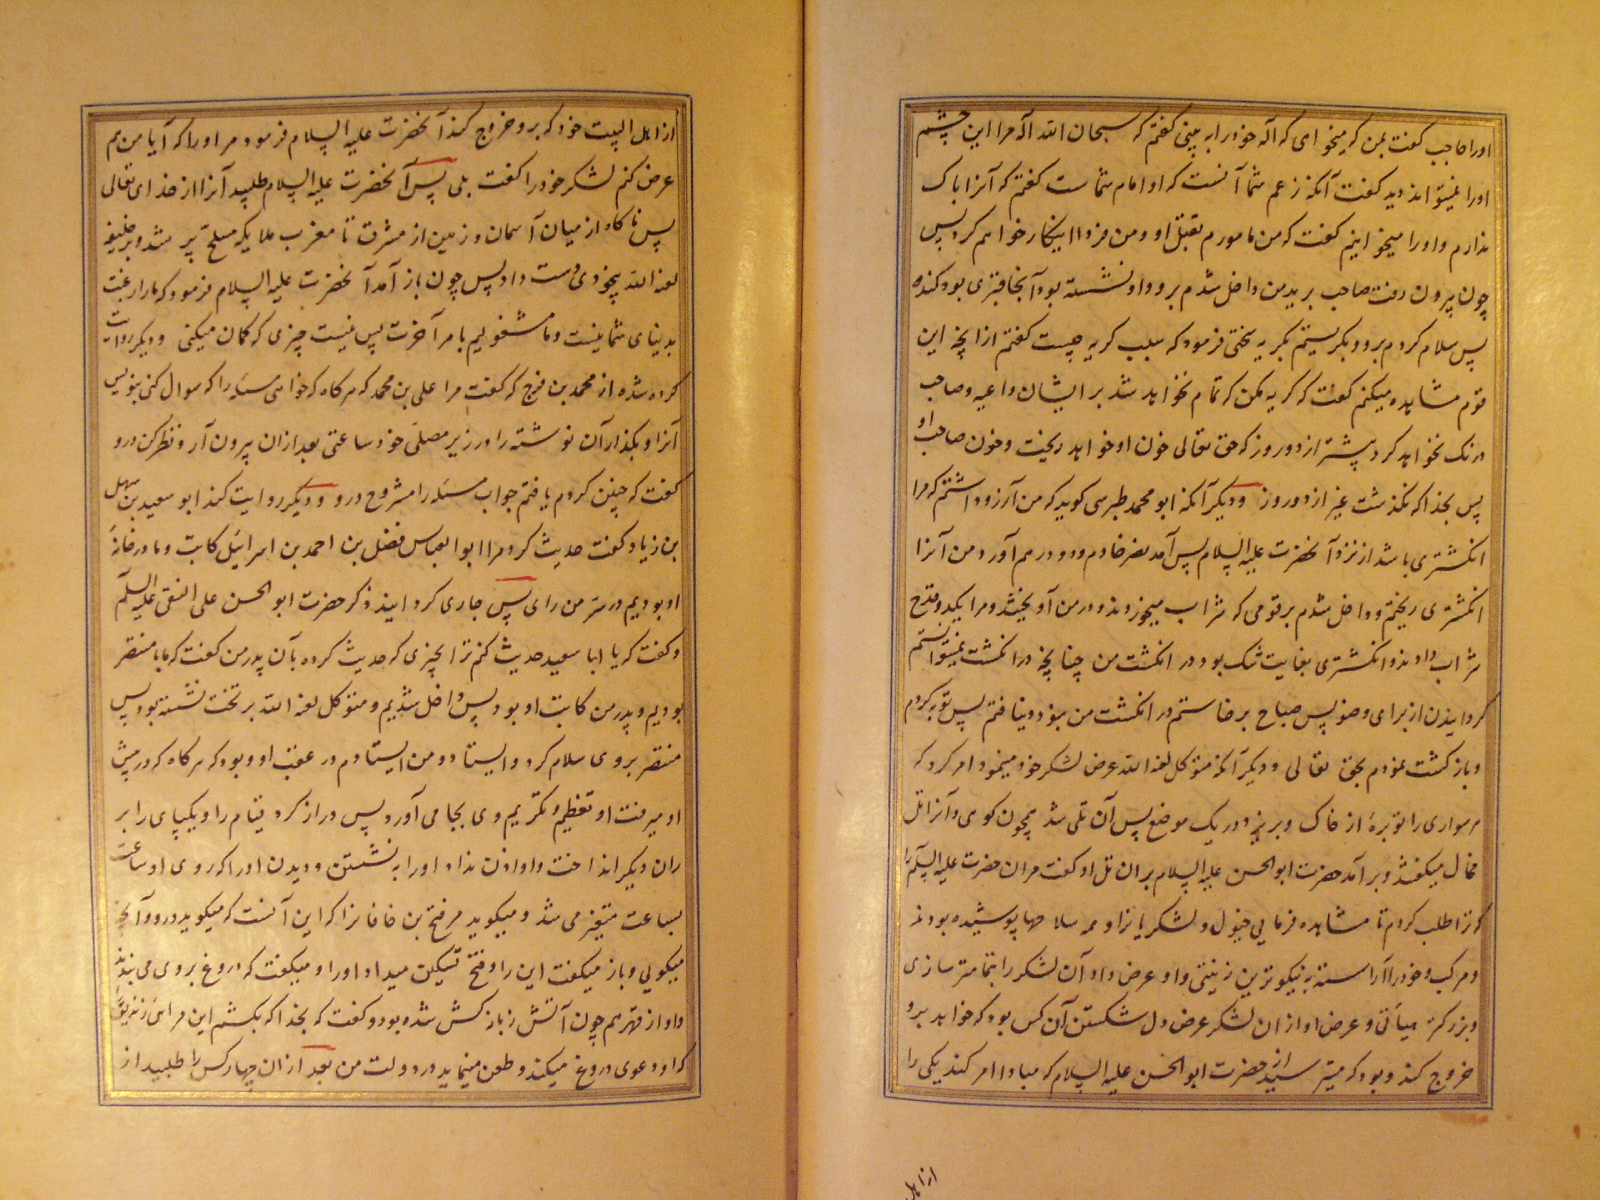 اورا حاجب گفت بمن که میخواهی که اله خود را به بینی گفتم که سبحان الله اله مرا این چشم
اورا نمیتواند دید گفت آنکه زعم شما آنست که او امام شماست گفتم که آنرا باک
ندارم و اورا میخواهم گفت که من مامورم بقتل او و من فردا اینکار خواهم کرد پس
چون بیرون رفت صاحب برید من داخل شدم برو و او نشسته بود و آنجا قبری بود کنده
پس سلام کردم برو و بگریستم بگریه سختی فرمود که سبب گریه چیست گفتم از آنچه این
قوم مشاهده میکنم گفت که گریه مکن که تمام نخواهد شد بر ایشان داعیه و صاحب
درنگ نخواهد کرد پیشتر از دو روز که حق تعالی خون او خواهد ریخت و خون صاحب او
پس بخدا که نگذشت غیر از دو روز و دیگر آنکه ابو محمد طبرسی گوید که من آرزو داشتم که مرا
انگشتری باشد از نزد آنحضرت علیه السلام پس آمد نصر خادم و دو درهم آورد من آنرا
انگشتری ریختم و داخل شدم بر قومی که شراب میخوردند و در من آویختند و مرا یکدو قدح
شراب دادند و انگشتری بغایت تنگ بود در انگشت من چنانچه در انگشت نمیتوانستم
گردانیدن از برای وضو پس صباح برخاستم در انگشت من نبود و نیافتم پس توبه کردم
و بازگشت نمودم بحق تعالی و دیگر آنکه متوکل لعنه الله عرض لشکر خود مینمود امر کرد که
هر سواری را توبره از خاک و بریزد در یک موضع پس آن تلی شد همچون کوهی و آنرا تل
مخال میگفتند و بر آمد حضرت ابو الحسن علیه السلام بران تل او گفت مران حضرت علیه السلام را
که ترا طلب کردم تا مشاهده فرمایی خیول و لشکریانرا و همه سلاحها پوشیده بودند
و مرکب و خود را آراسته به نیکوترین زینتی و او عرض داد آن لشکر را بتمامتر سازی
و بزرگتر هیأتی و عرض او ازان لشکر عرض دل شکستن آن کس بود که خواهد برو
خروج کند و بود که میترسید از حضرت ابو الحسن علیه السلام که مبادا امر کند یکی را
از اهل
از اهل البیت خود که برو خروج کند آنحضرت علیه السلام فرمود مر او را که آیا من هم
عرض کنم لشکر خود را گفت بلی پس آنحضرت علیه السلام طلبید آنرا از خدای تعالی
پس ناگاه از میان آسمان و زمین از مشرق تا مغرب ملایکه مسلح پر شد و بر خلیفه
لعنه الله بیخودی دست داد پس چون باز آمد آنحضرت علیه السلام فرمود که ما را رغبت
بدنیای شما نیست و ما مشغولیم بامر آخرت پس نیست چیزی که گمان میکنی و دیگر روایت
کرده شده از محمد بن فرج که گفت مرا علی بن محمد که هرگاه که خواهی مسئله را که سوال کنی بنویس
آنرا و بگذار آن نوشته را در زیر مصلی خود ساعتی بعد ازان بیرون آر و نظر کن درو
گفت که چنین کردم یافتم جواب مسئله را مشروح درو و دیگر روایت کند ابو سعید سهل
بن زیاد گفت حدیث کرد مرا ابو العباس فضل بن احمد بن اسرائیل کاتب و ما در خانه
او بودیم در سر من رای پس جاری گردانید ذکر حضرت ابو الحسن علی النقی علیه السلم
و گفت که یا ابا سعید حدیث کنم ترا بچیزی که حدیث کرده بآن پدر من گفت که ما با منتصر
بودیم و پدر من کاتب او بود پس داخل شدیم و متوکل لعنه الله بر تخت نشسته بود پس
منتصر بروی سلام کرد و ایستاد و من ایستادم در عقب او و بود که هرگاه که در پیش
او میرفت او تعظیم و تکریم وی بجا می آورد پس دراز کرد قیام را و یکپای را بر
ران دیگر انداخت و او اذن نداد او را به نشستن و دیدن او را که روی او ساعت
بساعت متغیر می شد و میگوید مر فتح بن خاقانرا که این آنست که میگوید درو آنچه
میگویی و باز میگفت این را و فتح تسکین میداد او را و میگفت که دروغ بروی می بندند
و او از قهر هم چون آتش زبانه کش شده بود و گفت که بخدا که بکشم این مرائی زندیق را
که او دعوی دروغ میکند و طعن مینماید در دولت من بعد ازان چهار کس را طلبید از